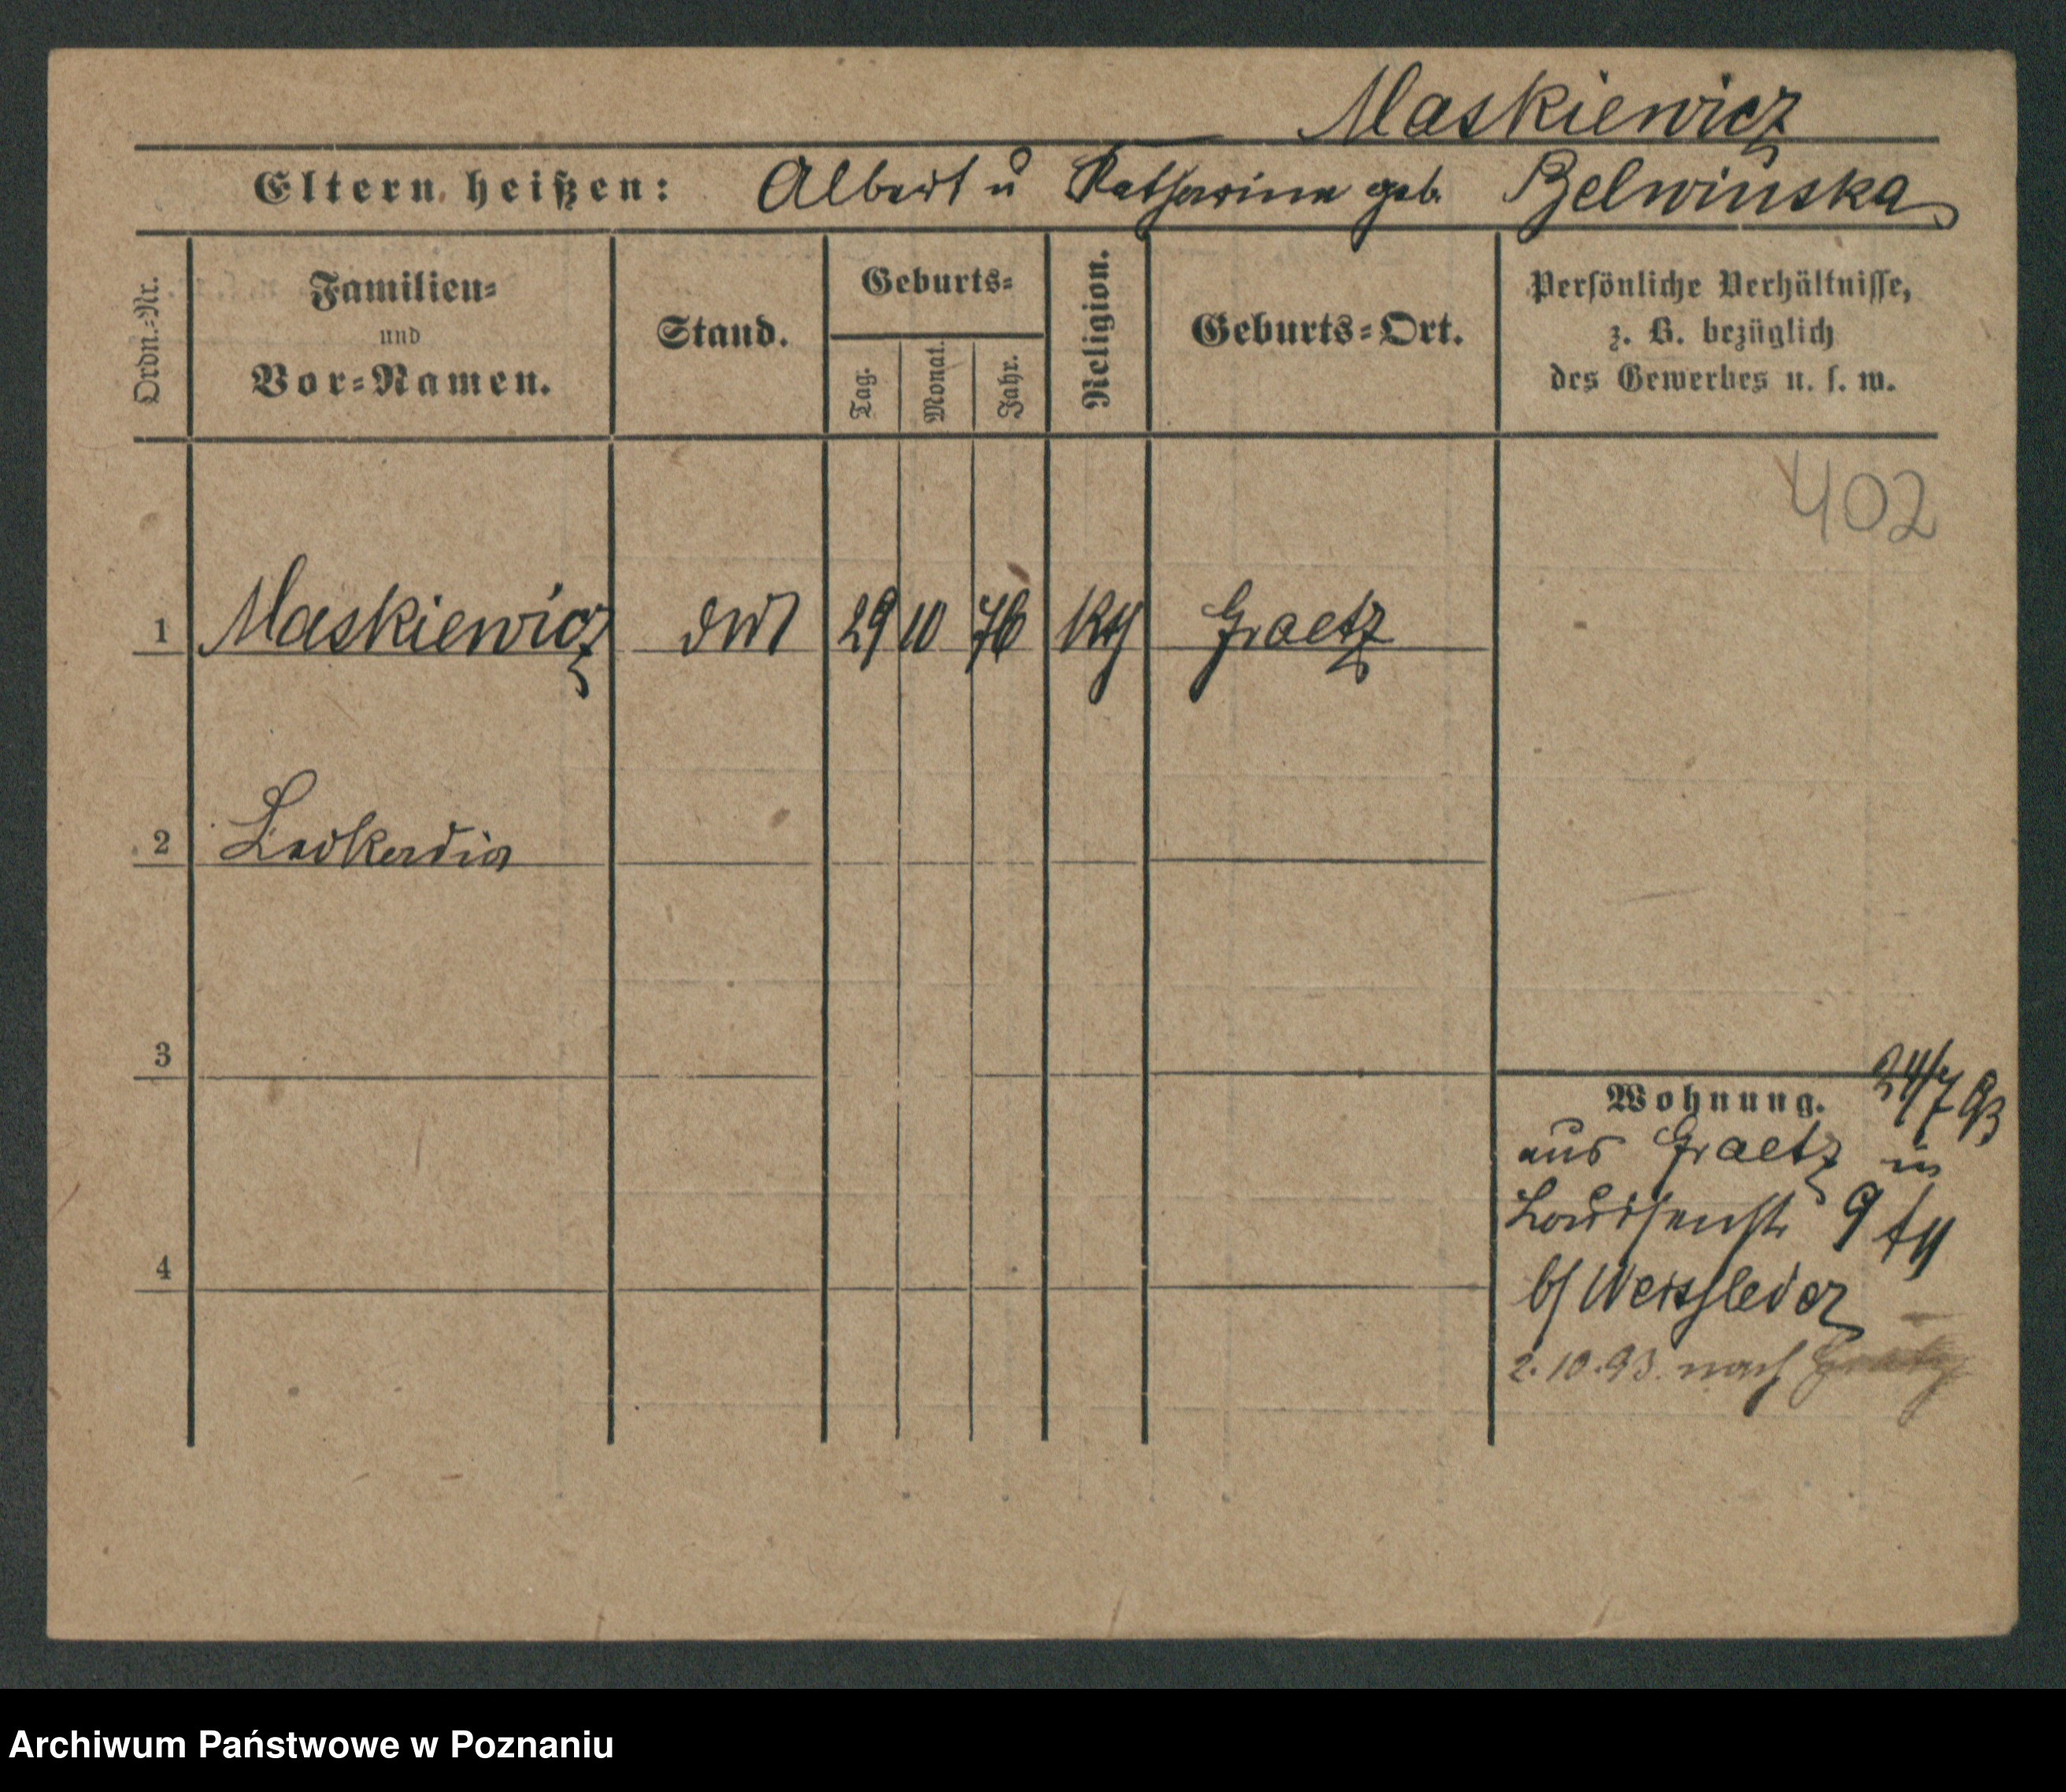 Maskiewicz
Eltern heißen: Albert u Katharina geb. Belwinska
Ordn.-Nr.
Familien-
und
Vor-Namen.
Stand.
Geburts-
Tag.
Monat.
Jahr.
Religion.
Geburts-Ort.
Persönliche Verhältnisse,
z. B. bezüglich
des Gewerbes u. s. w.
402
1 Maskiewicz 29 10 76 kth Graetz
2 Leokadia
3
4
Wohnung. 24/7 93
aus Graetz in
Louisenstr 9
b/ Weissleder
2.10.93. nach Graetz
Archiwum Państwowe w Poznaniu